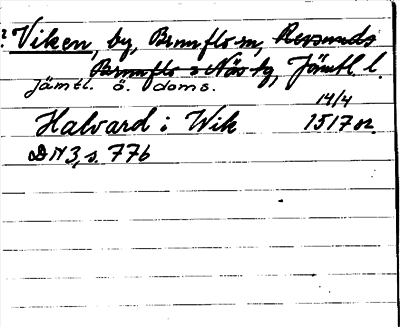 ? Viken, by, Brunflo sn, Revsunds
Brunflo o Näs tg, Jämtl. l.
Jämtl. ö. doms.
14/4
Halvard i Wik 1517 or.
DN 3, s. 776